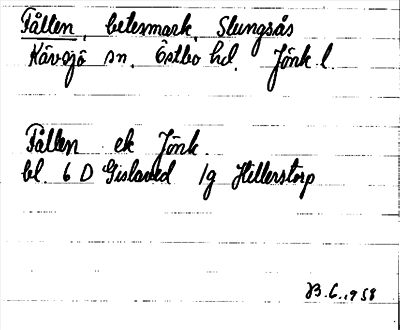 Fållen, betesmark, Slungsås
Kävsjö sn. Östbo hd. Jönk l.
Fållen ek Jönk
bl. 6 D Gislaved 1g Hillerstorp
1958